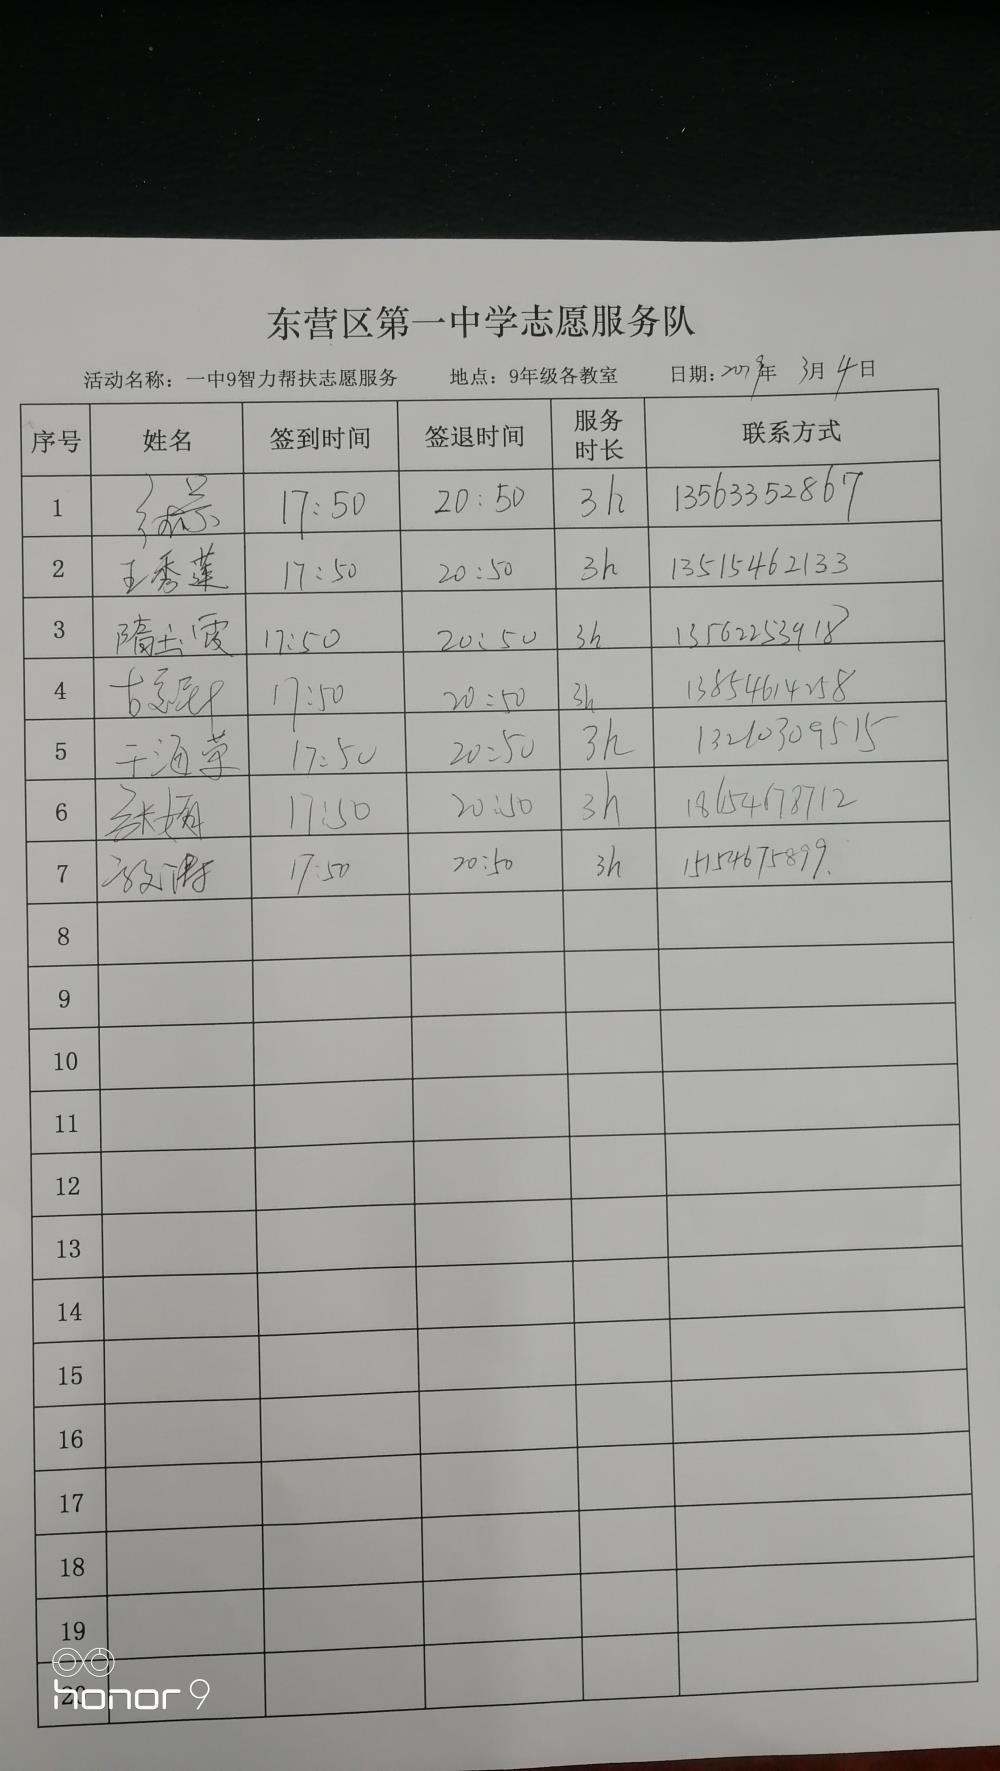 东营区第一中学志愿服务队
活动名称：一中9智力帮扶志愿服务 地点：9年级各教室 日期：2019年 3月4日
序号 姓名 签到时间 签退时间 服务时长 联系方式
1 17:50 20:50 3h 13563352867
2 王秀莲 17:50 20:50 3h 13515462133
3 隋玉霞 17:50 20:50 3h 13562253918
4 17:50 20:50 3h 13854614258
5 于海荣 17:50 20:50 3h 13210309515
6 17:50 20:50 3h 18654678712
7 17:50 20:50 3h 15154675899.
8
9
10
11
12
13
14
15
16
17
18
19
20
honor 9